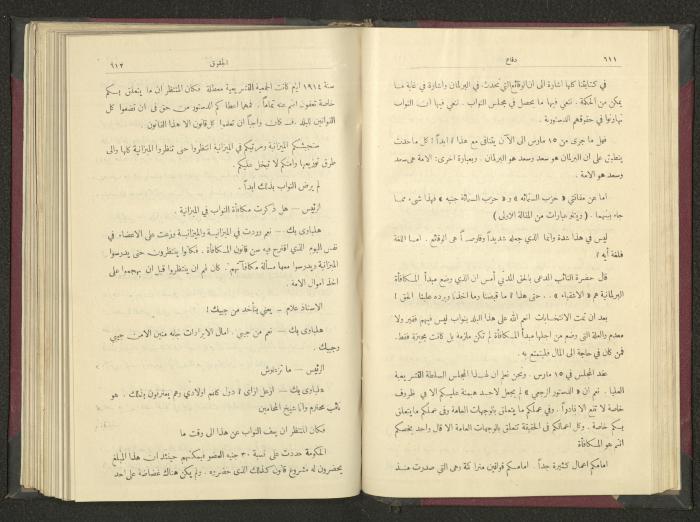 ٦١١ دفاع
فى كتاباتنا كلها اشارة الى ان الوقائع التى تحدث . فى البرلمان واشارة فى غاية ما
يمكن من الحكمة . ننعى فيها ما يحصل فى مجلس النواب . ننعى فيها ان النواب
تهاونوا فى حقوقهم الدستورية .
فهل ما جرى من ١٥ مارس الى الآن يتنافى مع هذا ؟ ابداً ! كل ما حدث
ينطبق على ان البرلمان هو سعد وسعد هو البرلمان . وبعبارة اخرى : الامة هى سعد
وسعد هو الامة .
اما عن مقالتى « حزب الستمائة » و « حزب الستمائة جنيه » فهذا شىء مما
جاء بينهما . ( ويتلو عبارات من المقالة الاولى )
ليس فى هذا شدة وانما الذى جعله شديداً وقارصاً هى الوقائع . اما اللغة
فلغة أيه ؟
قال حضرة النائب المدعى بالحق المدنى أمس ان الذى وضع مبدأ المكافأة
البرلمانية هم « الاشقياء » . . حتى هذا ؟ ما قبضنا وما اخذنا ويرده علينا الحق !
بعد ان تمت الانتخابات انعم الله على هذا البلد بنواب ليس فيهم فقير ولا
معدم والعلة التى وضع من اجلها مبدأ المكافأة لم تكن ملزمة بل كانت مجيزة فقط .
فمن كان فى حاجة الى المال فليتمتع به .
عقد المجلس فى ١٥ مارس . ونحن نعلم ان لهذا المجلس السلطة التشريعية
العليا . نعم ان « الدستور الرجعى » لم يجعل لاحد هيمنة عليكم الا فى ظروف
خاصة لا تقع الا نادراً . وفى عملكم ما يتعلق بالوجهات العامة وفى عملكم ما يتعلق
بكم خاصة . وكل اعمالكم فى الحقيقة تتعلق بالوجهات العامة الا قال واحد يخصكم
انتم هو المكافأة
امامكم اعمال كثيرة جداً . امامكم قوانين متراكمة وهى التى صدرت منذ
الحقوق ٦١٢
سنة ١٩١٤ ايام كانت الجمعية التشريعية معطلة فكان المنتظر ان ما يتعلق بكم
خاصة تعفون انتم عنه تماماً . فمهما اعطاكم الدستور من حق فى ان تضعوا كل
القوانين للبلد فكان واجباً ان تعلموا كل قانون الا هذا القانون .
ستجيئكم الميزانية وضريتكم فى الميزانية انتظروا حتى تنظروا الميزانية كلها والى
طرق توزيعها وامتكم لا تبخل عليكم .
لم يرض النواب بذلك ابداً .
الرئيس — هل ذكرت مكافأة النواب فى الميزانية .
هلباوى بك — نعم وردت فى الميزانية والميزانية وزعت على الاعضاء فى
نفس اليوم الذى اقترح فيه سن قانون المكافأة . فكانوا ينتظرون حتى يدرسوا
الميزانية ويدرسوا معها مسألة مكافآتهم . كان لهم ان ينتظروا قبل ان يهجموا على
اخذ اموال الامة .
الاستاذ علام — يعنى يتأخد من جيبك !
هلباوى بك — نعم من جيبى . امال الايرادات جايه منين الا من جيبى
وجيبك .
الرئيس — ما تزعلوش
هلباوى بك — ازعل ازاى ؟ دول كلهم اولادى وهم يعترفون بذلك . هو
نائب محترم وانا شيخ المحامين
فكان المنتظر ان يعف النواب عن هذا الى وقت ما
الحكومة حددت على نسبة ٣٠ جنيه العضو فيمكنهم حينئذ ان هذا المبلغ
يحضرون له مشروع قانون كذلك الذى حضروه . ولم يكن هناك غضاضة على احد